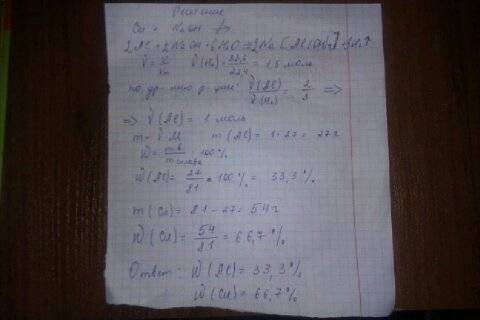 Решение
Cu + NaOH ≠>
2Al + 2NaOH + 6H2O => 2Na[Al(OH)4] + 3H2↑
ν = V/Vm ν(H2) = 33,6/22,4 = 1,5 моль
по ур-нию р-ции: ν(Al)/ν(H2) = 2/3 =>
=> ν(Al) = 1 моль
m = ν·M m(Al) = 1·27 = 27 г
W = mв/mсплава · 100%
W(Al) = 27/81 · 100% = 33,3%
m(Cu) = 81 - 27 = 54 г
W(Cu) = 54/81 = 66,7%
Ответ: W(Al) = 33,3%
W(Cu) = 66,7%